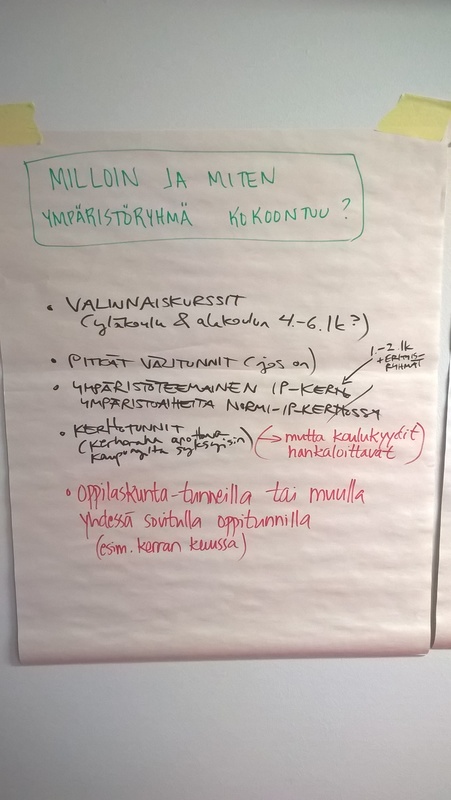 MILLOIN JA MITEN
YMPÄRISTÖRYHMÄ KOKOONTUU?
• VALINNAISKURSSIT
(yläkoulu & alakoulun 4.-6. lk?)
• PITKÄT VÄLITUNNIT (jos on)
1.-2. lk
+ ERITYIS-
RYHMÄT
• YMPÄRISTÖTEEMAINEN IP-KERHO
YMPÄRISTÖAIHEITA NORMI-IP-KERHOSSA
• KERHOTUNNIT
(Kerhoraha anottava
kaupungilta syksyisin)
(→ mutta koulukyydit
hankaloittavat)
• Oppilaskunta-tunneilla tai muulla
yhdessä sovitulla oppitunnilla
(esim. kerran kuussa)